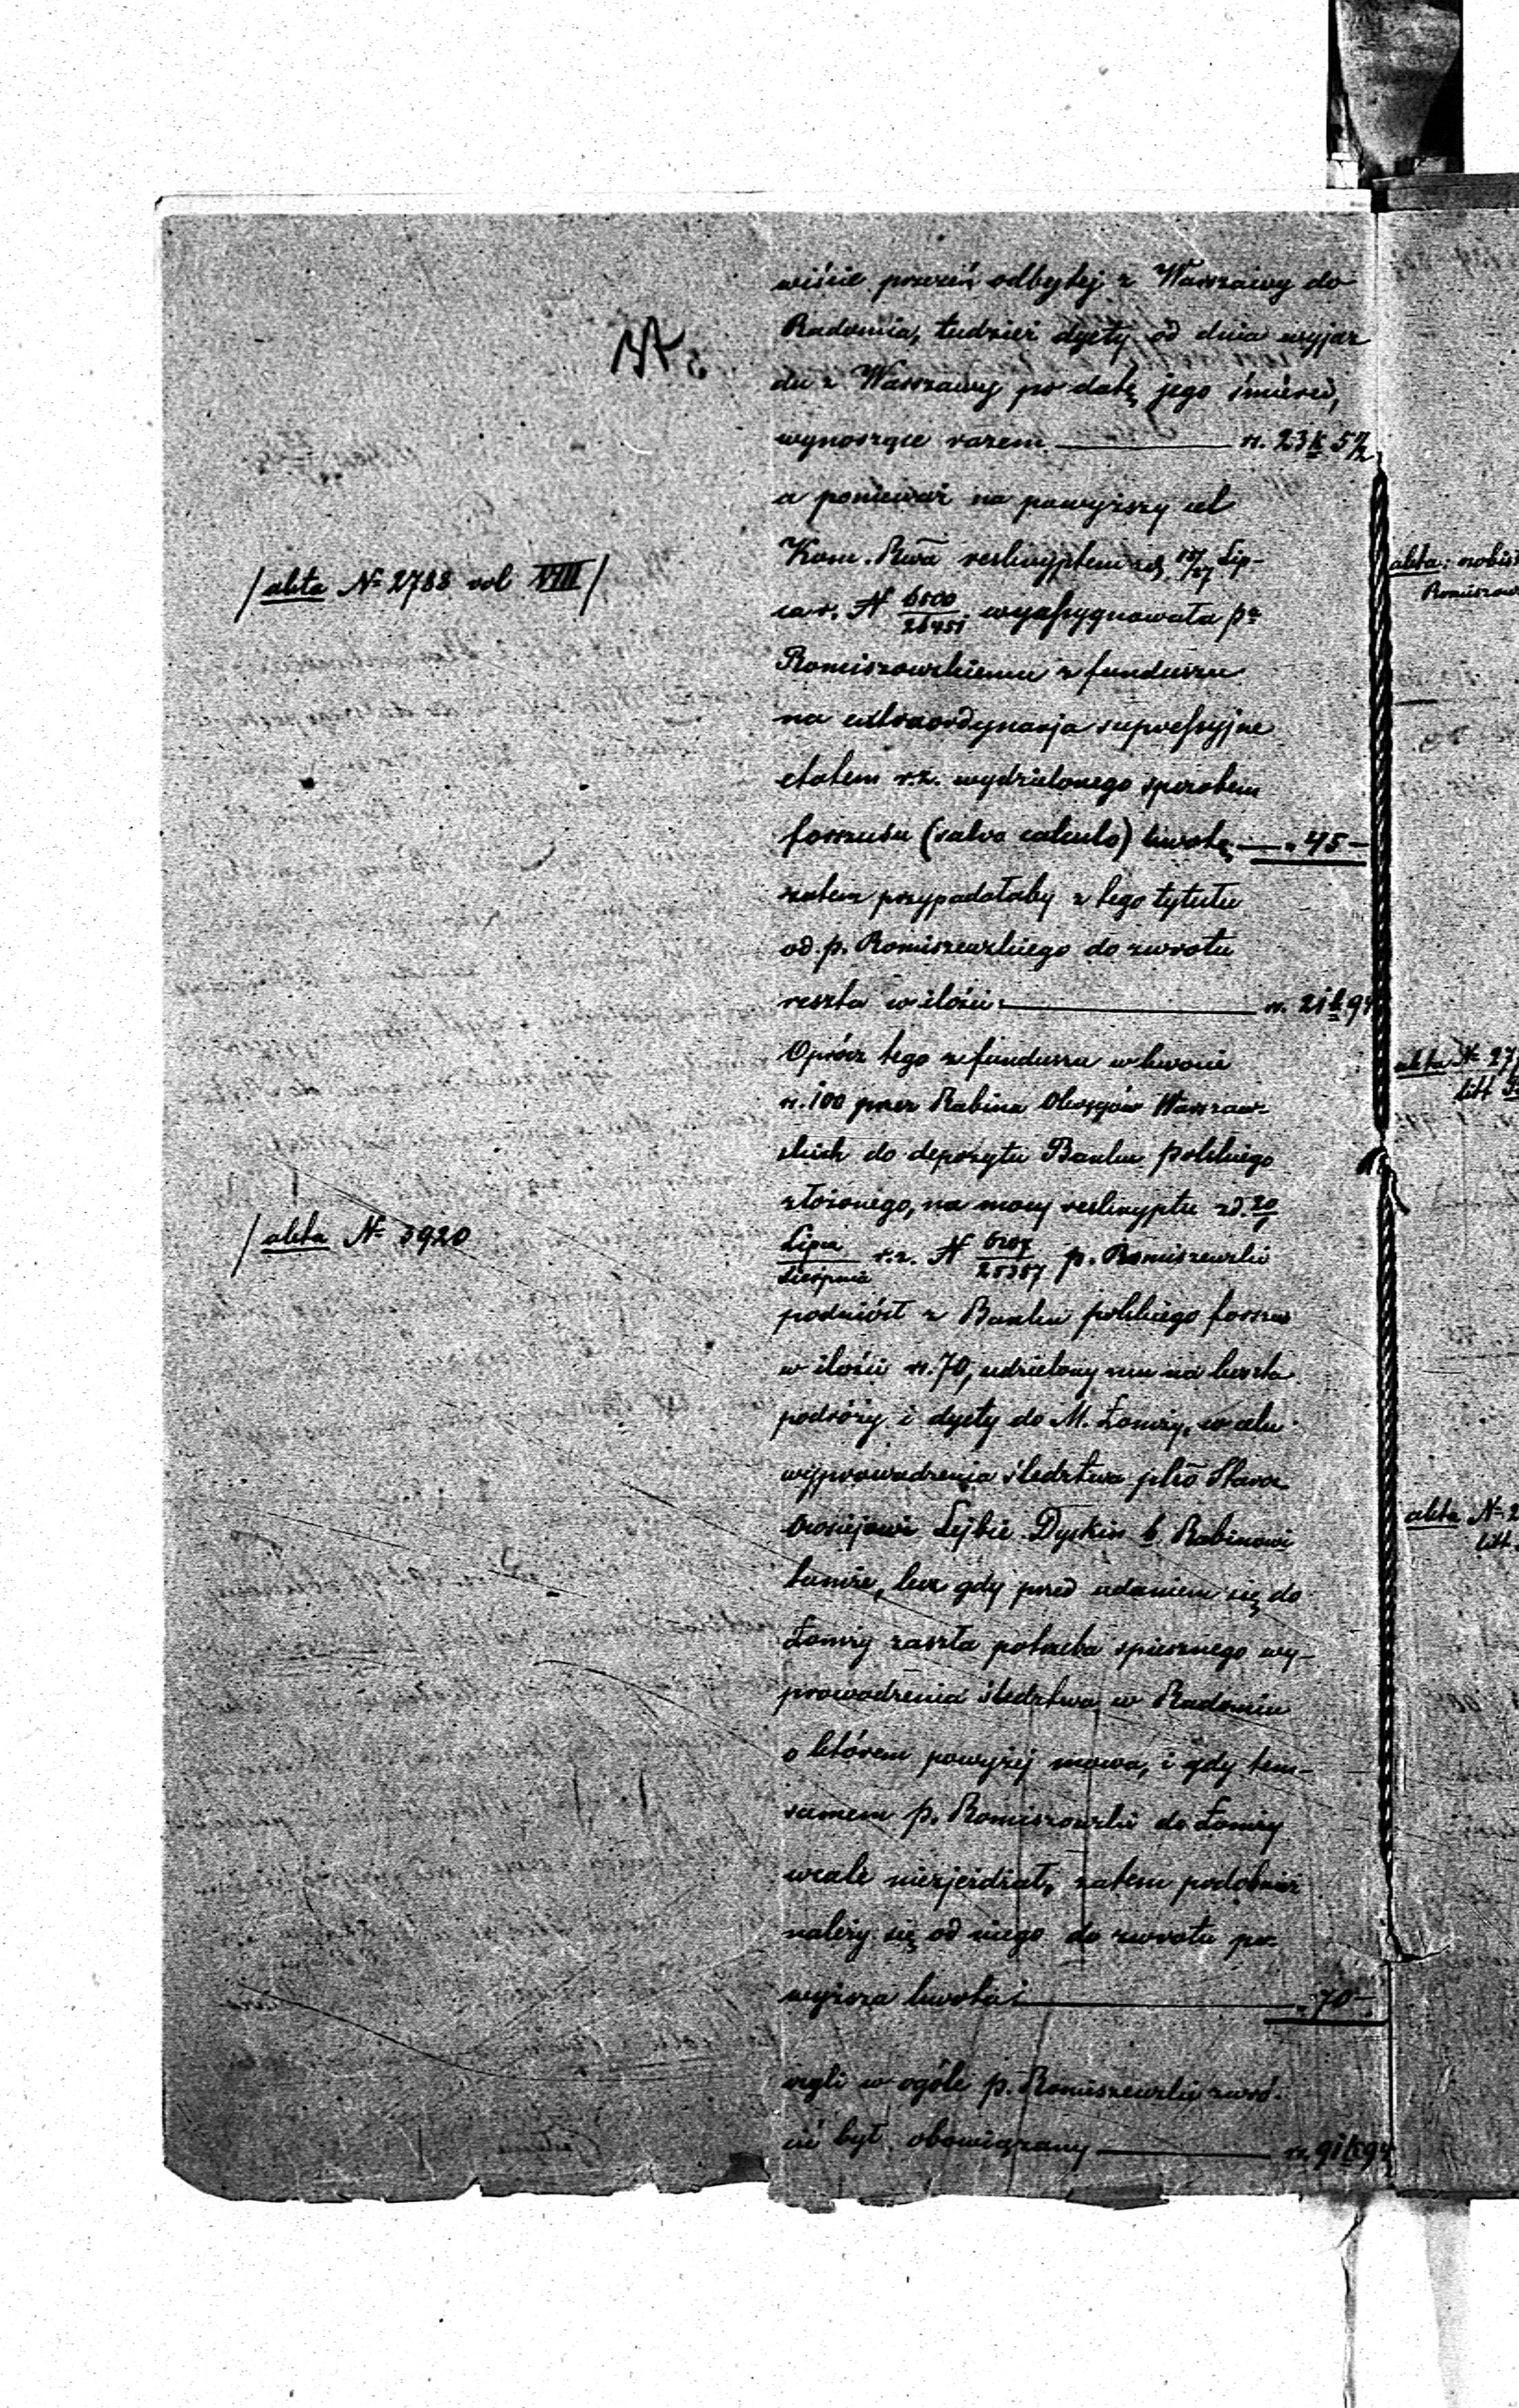 wiście przezeń odbytej z Warszawy do
Radomia, tudzież dyety od dnia wyjaz
du z Warszawy po datę jego śmierci,
wynoszące razem rs. 23 k 5½
a ponieważ na powyższy cel
/akta № 2788 vol XVIII/
Kom. Rwa reskryptem z d. 15/27 Lip-
ca r. N 6500/26451 wyassygnowała pu
Romiszowskiemu z funduszu
na extraordynarja supressyjne
etatem r.z. wydzielonego sposobem
forszusu (salvo calculo) kwotę " 45 –
zatem przypadałaby z tego tytułu
od p. Romiszewskiego do zwrotu
reszta w ilości rs. 21 k 94
Oprócz tego z funduszu w kwocie
rs. 100 przez Rabina Okręgów Warszaw-
skich do depozytu Banku polskiego
złożonego, na mocy reskryptu z d. 20/1
/akta № 3920
Lipca/Sierpnia r.z. N 6207/25357 p. Romiszewski
podniósł z Banku polskiego forszus
w ilości rs. 70, udzielony mu na koszta
podróży i dyety do M. Łomży, w celu
wyprowadzenia śledztwa pko Staroz.
Owsiejowi Lejbie Dyskin b. Rabinowi
tamże, lecz gdy przed udaniem się do
Łomży zaszła potrzeba spiesznego wy-
prowadzenia śledztwa w Radomiu
o którem powyżej mowa, i gdy tem-
samem p. Romiszowski do Łomży
wcale niezjeżdżał, zatem podobnież
należy się od niego do zwrotu po-
wyższa kwota " 70 –
czyli w ogóle p. Romiszewski zwró-
cić był obowiązany rs. 91 k 94
akta: osobist
Romiszow
akta № 277
litt
akta № 2
litt.